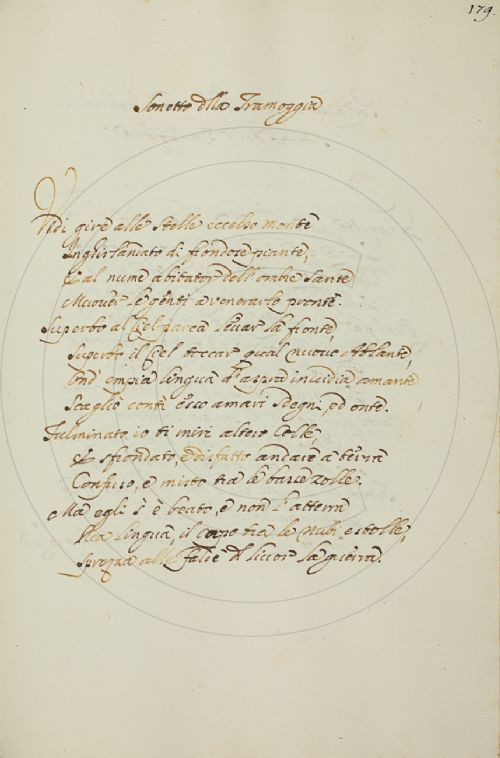 179.
Sonetto della Tramoggia
Vidi gire alle stelle eccelso monte
Inghirlandato di frondose piante,
E al nume abitator dell'ombre sante
Muover le genti a venerarle pronte.
Superbo al Ciel parea levar la fronte,
Superbo il Ciel toccar qual nuovo Atlante,
Ond' empia lingua d'aspra invidia amante
Scagliò contr'esso amari sdegni, ed onte.
Fulminato io ti miri altero Colle,
E sfrondato, e disfatto andare a terra
Confuso, e misto tra le basse zolle.
Ma egli s'è beato, e non l'atterra
lingua, il capo tra le nubi estolle,
Sprezza alle falde la guerra.